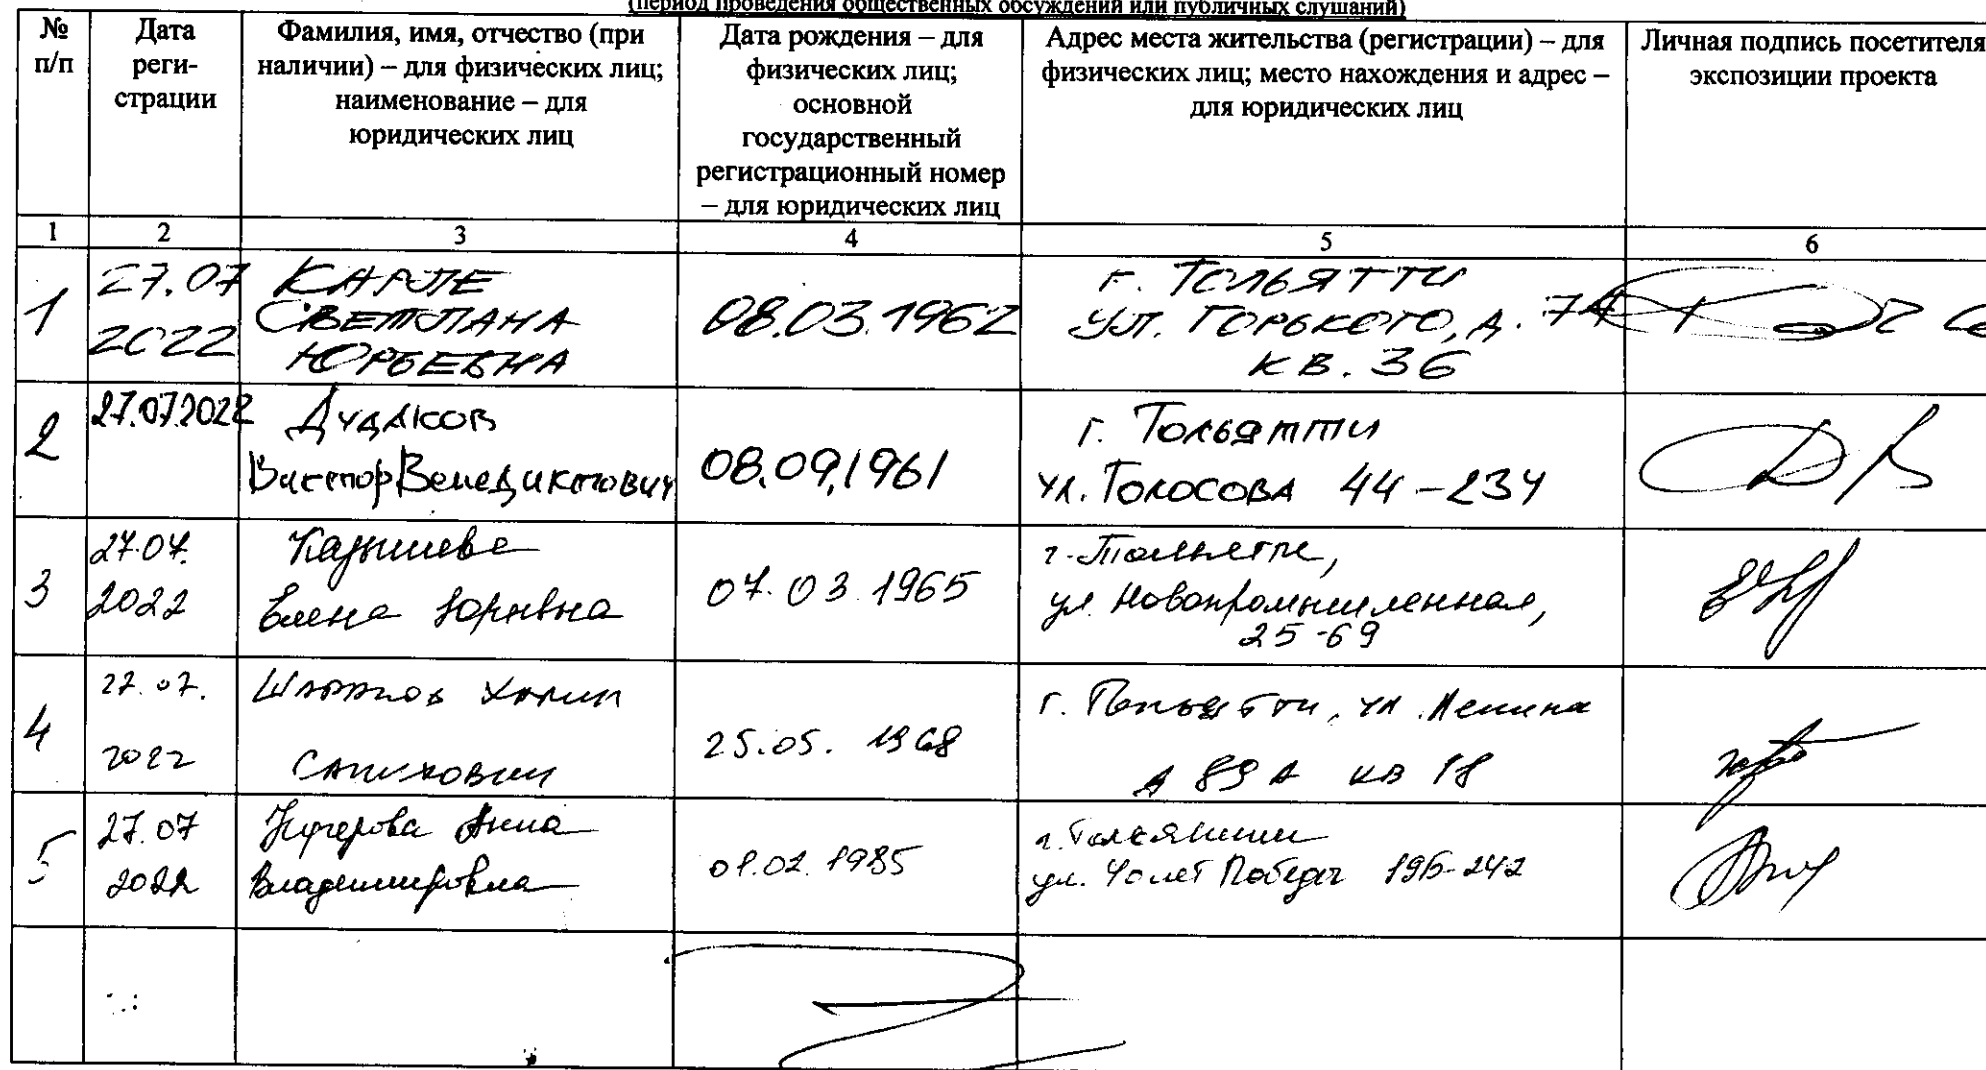 (период проведения общественных обсуждений или публичных слушаний)
№ п/п
Дата реги-страции
Фамилия, имя, отчество (при
наличии) – для физических лиц;
наименование – для
юридических лиц
Дата рождения – для
физических лиц;
основной
государственный
регистрационный номер
– для юридических лиц
Адрес места жительства (регистрации) – для
физических лиц; место нахождения и адрес –
для юридических лиц
Личная подпись посетителя
экспозиции проекта
1 2 3 4 5 6
1
27.07
2022
КАРПЕ
СВЕТЛАНА
ЮРЬЕВНА
08.03.1962
г. ТОЛЬЯТТИ
УЛ. ГОРЬКОГО, Д. 74
КВ. 36
2
27.07.2022
Дудаков
Виктор Венедиктович
08.09.1961
г. Тольятти
ул. Голосова 44-234
3
27.07.
2022
Елена Юрьевна
07.03.1965
г. Тольятти,
ул. Новопромышленная,
25-69
4
27.07.
2022
25.05. 1968
г. Тольятти, ул. Ленина
д 89 А кв 18
5
27.07
2022
Кучерова Анна
Владимировна
01.02.1985
г. Тольятти
ул. 40 лет Победы